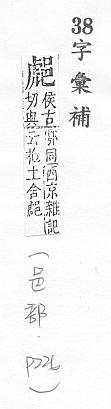 38
字彙補
侯古同西京雜記
切與云土合
(邑部.P226)